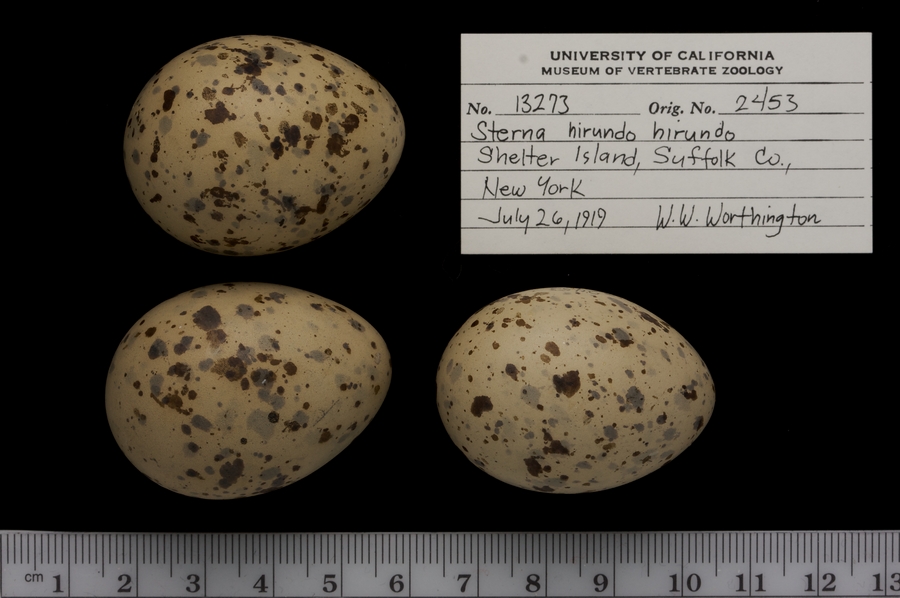 UNIVERSITY OF CALIFORNIA
MUSEUM OF VERTEBRATE ZOOLOGY
No. 13273 Orig. No. 2453
Sterna hirundo hirundo
Shelter Island, Suffolk Co.,
New York
July 26, 1919 W.W. Worthington
cm 1 2 3 4 5 6 7 8 9 10 11 12 13